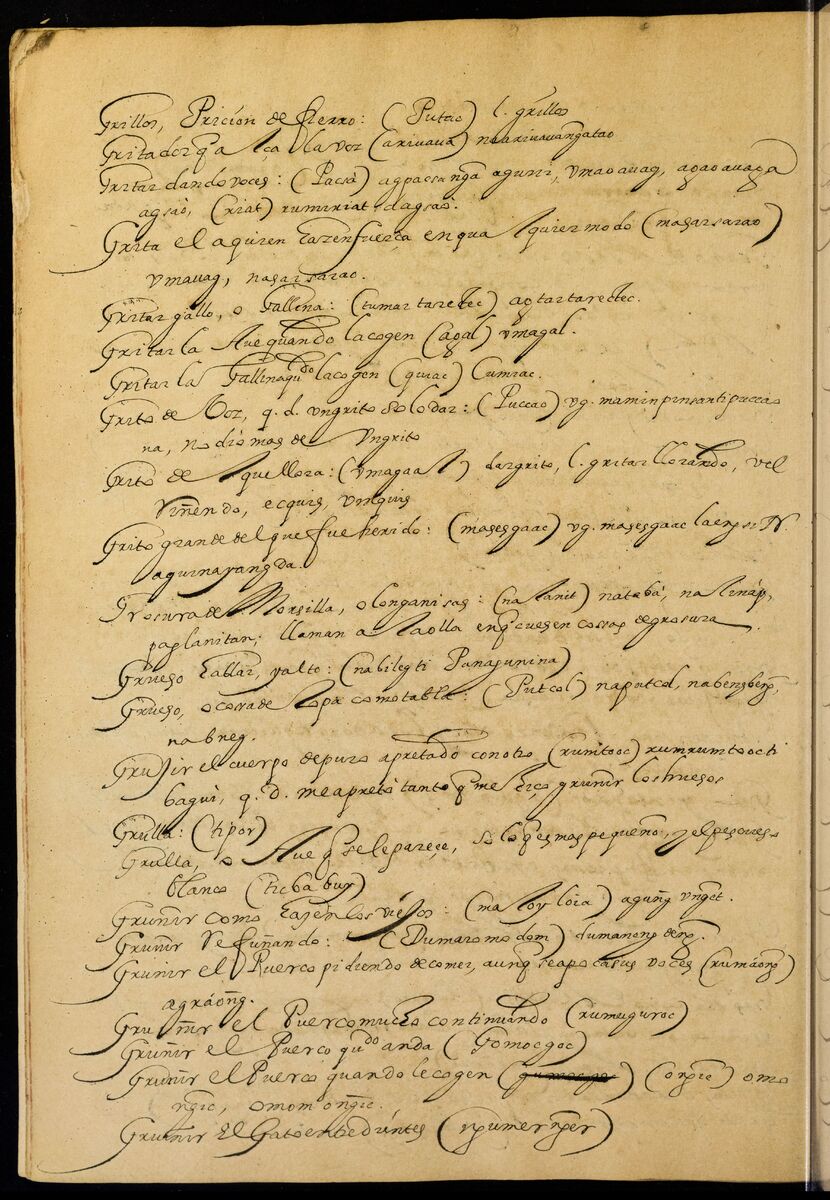 Grillos, Pricion de fierro: (Putao) l. grillos
Gritador q̃ alça la voz (arivava) naarivavangatao
Gritar dando voces: (Pacsà) agpacsanga aguni, vmaoavag, agaoavaga
agsaò, (riat) rumiriat dagsaò.
Grita el a quien hazen fuerça en qualquier modo (masarsarao)
vmavag, nasarsarao.
Gritar gallo, o Gallina: (tumartarectec) agtartarectec.
Gritar la Aue quando la cogen (agal) vmagal.
Gritar la Gallina qu.do la cogen (quiac) Cumiac.
Grito de Voz, q. d. vn grito solo dar: (Puccao) vg. maminpinsanti puccao
na, no dio mas de Vn grito
Grito de Aquel lora: (vmagaal) dar grito, l. gritar llorando, vel
riñendo, ecquis, vmquis
Grito grande del que fue herido: (masesgaac) vg. masesgaac la eng si N.
aquinayangda.
Grosura de Morsilla, o longanisas: (nalanit) nataba, nalinap,
paglanitan; llaman a la olla enq̃ cuesen cossas de grosura.
Grueso hallar, y alto: (nabilegti Panagunina)
Grueso, o cossa de Ropa como tabla: (Putcol) naputcol, nabengbeng,
nabneg.
Grujir el cuerpo de puro apretado con otro (rumtooc) rumrumtoocti
bagui, q. d. me apretò tanto q̃ me hiço grunir los huesos
Grulla: (tipor)
Grulla, o Aue q̃ se le pareçe, solo q̃ es mas pequeño, y el pescueso
blanco (ticbabuy)
Gruñir como hazen los viejos: (maloyloia) agung vnget.
Gruñir Refuñando: (Dumaromodom) dumanongdeng.
Gruñir el Puerco pidiendo de comer, aunq̃ sea pocas sus voces (rumàong)
agràong.
Gruñir el Puerco mucho continuando (rumuguroc)
Gruñir el Puerco qu.do anda (Gomocgoc)
Gruñir el Puerco quando le cogen (ongic) omo
ngic, omomongic.
Gruñir El Gato entre diêntes (ngumernger)